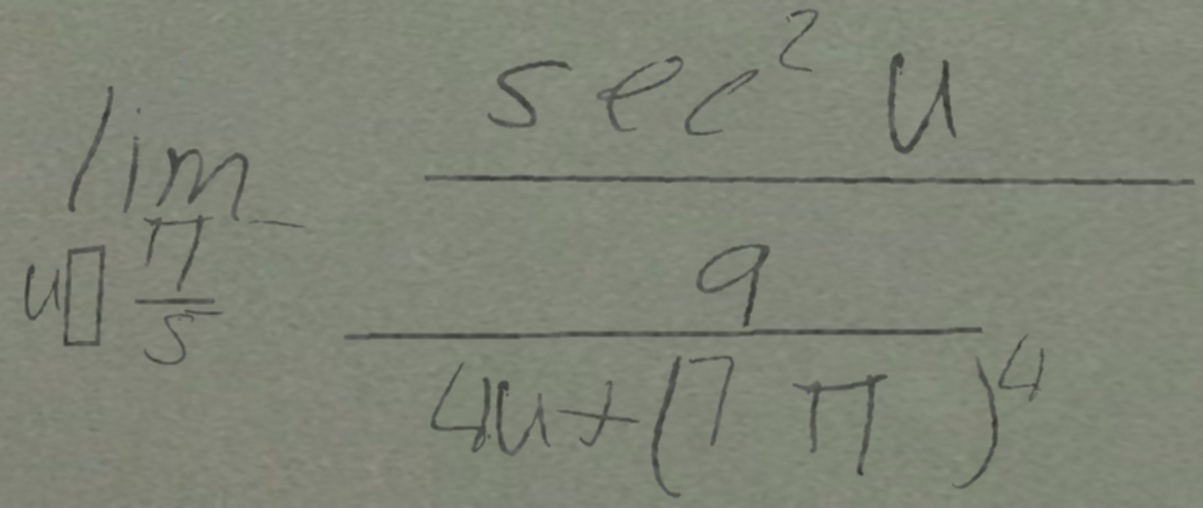 \lim_{u□\frac{\pi}{5}^{-}} \frac{\sec^{2} u}{\frac{9}{4u+(7\pi)^{4}}}